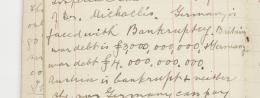 of Dr. Michaelis. Germany is
faced with Bankruptcy. Britain
war debt is £3000,000,000, & Germany
war debt £4,000,000,000
Austria is bankrupt & neither
the nor Germany can pay